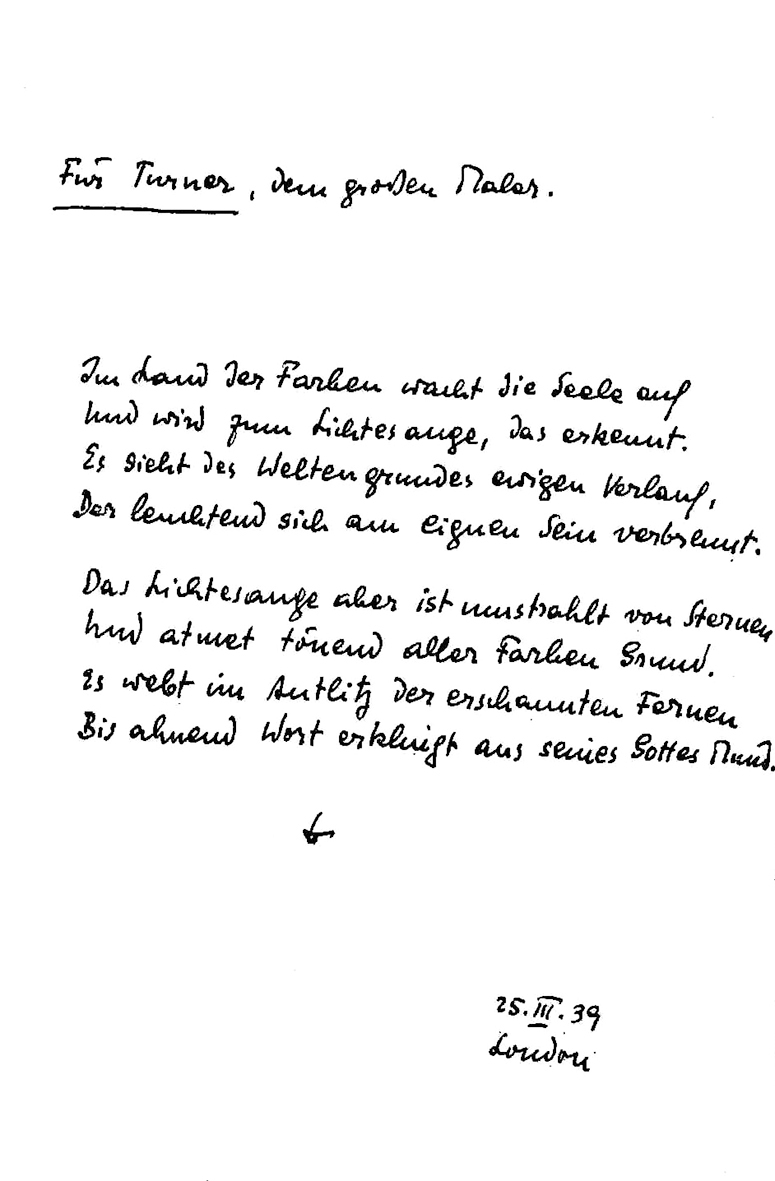 Für Turner, dem großen Maler.
Im Land der Farben wacht die Seele auf
Und wird zum Lichtesauge, das erkennt.
Es sieht des Weltengrundes ewigen Verlauf,
Der leuchtend sich am eignen Sein verbrennt.
Das Lichtesauge aber ist umstrahlt von Sternen
Und atmet tönend aller Farben Grund.
Es webt im Antlitz der erschauten Fernen
Bis ahnend Wort erklingt aus seines Gottes Mund.
25. III. 39
London